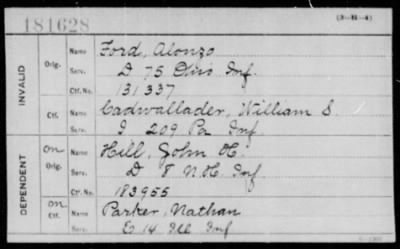 181628
(3-111-4)
INVALID
Orig. Name Ford, Alonzo
Serv. D 75 Ohio Inf.
Ctf. No. 131337
Ctf. Name Cadwallader, William S.
Serv. I 209 Pa Inf
DEPENDENT
on Orig. Name Hill, John H.
Serv. D 8 N.H. Inf
Ctf. No. 183955
on Ctf. Name Parker, Nathan
E 14 Ill Inf